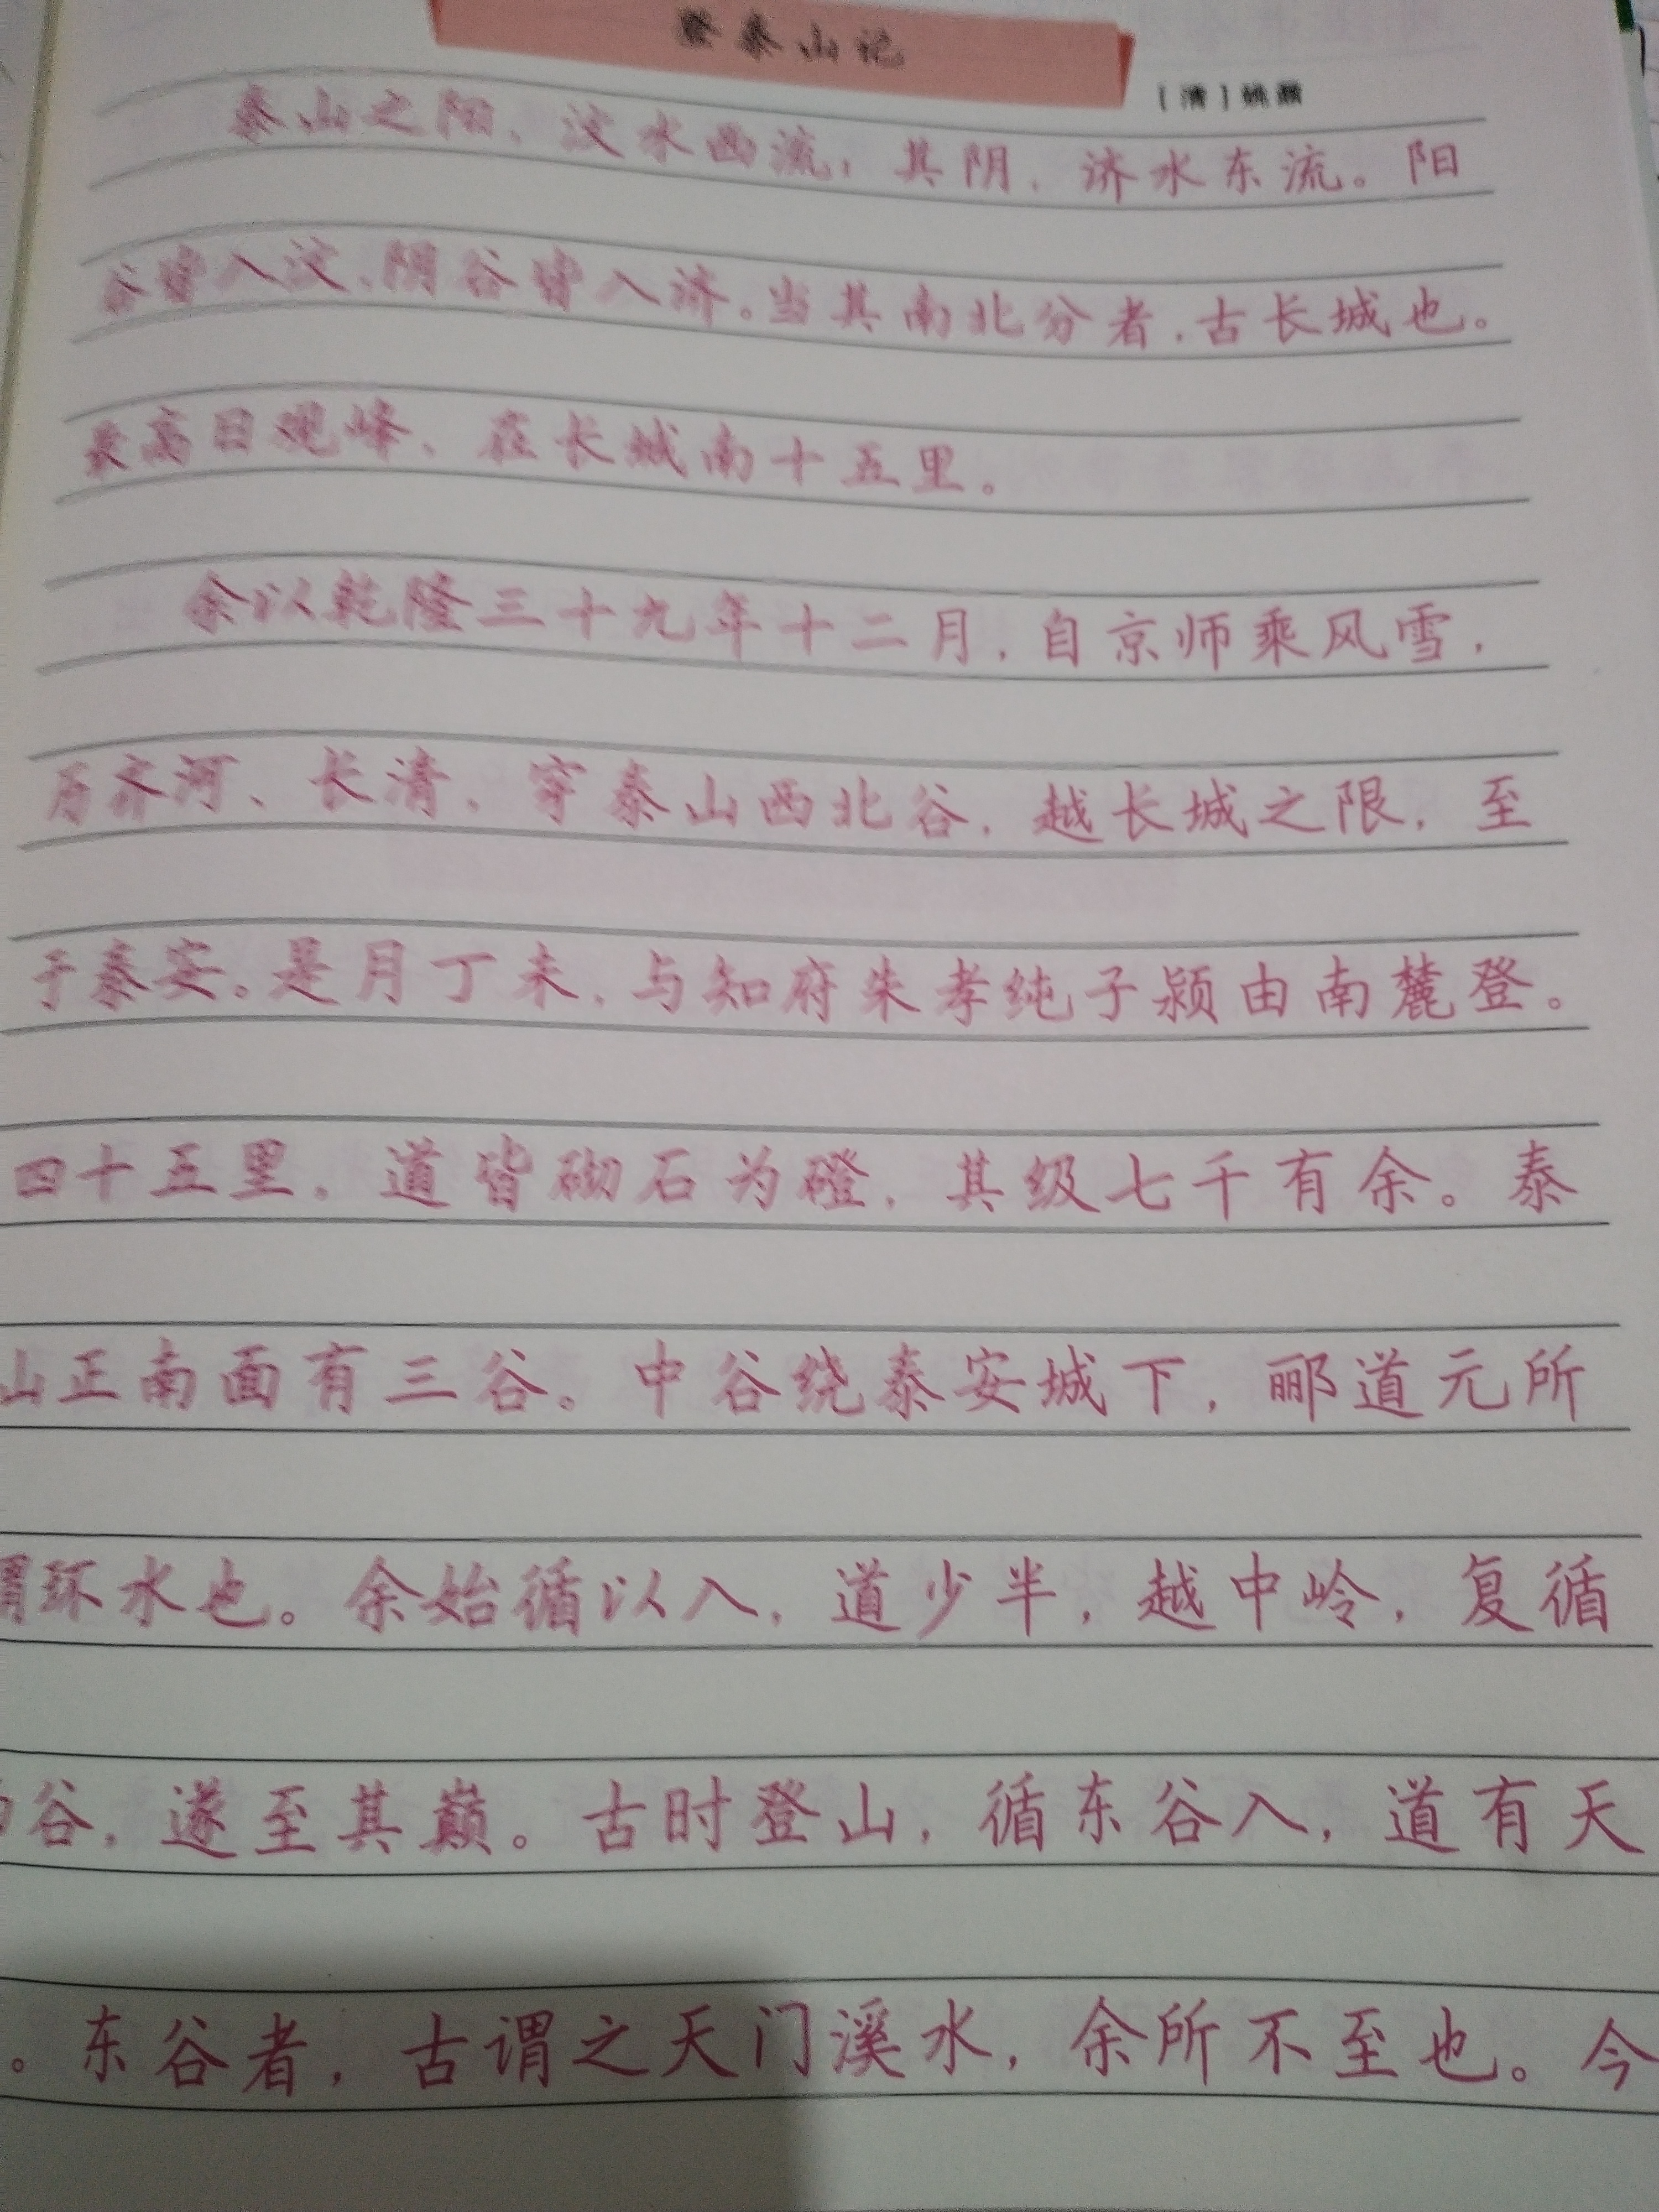 登泰山记
[清]姚鼐
泰山之阳，汶水西流；其阴，济水东流。阳
谷皆入汶，阴谷皆入济。当其南北分者，古长城也。
最高日观峰，在长城南十五里。
余以乾隆三十九年十二月，自京师乘风雪，
历齐河、长清，穿泰山西北谷，越长城之限，至
于泰安。是月丁未，与知府朱孝纯子颍由南麓登。
四十五里，道皆砌石为磴，其级七千有余。泰
山正南面有三谷。中谷绕泰安城下，郦道元所
谓环水也。余始循以入，道少半，越中岭，复循
谷，遂至其巅。古时登山，循东谷入，道有天
。东谷者，古谓之天门溪水，余所不至也。今